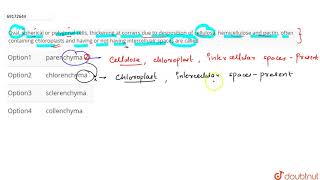 69172649
Oval, spherical or polygonal cells, thickening at corners due to desposition of cellulose, hemicellulose and pectin, often
containing chloroplasts and having or not having intercellular spaces are called
Option1 parenchyma → Cellulose, chloroplast, intercellular spaces - present
Option2 chlorenchyma → Chloroplast, intercellular spaces - present
Option3 sclerenchyma
Option4 collenchyma
doubtnut